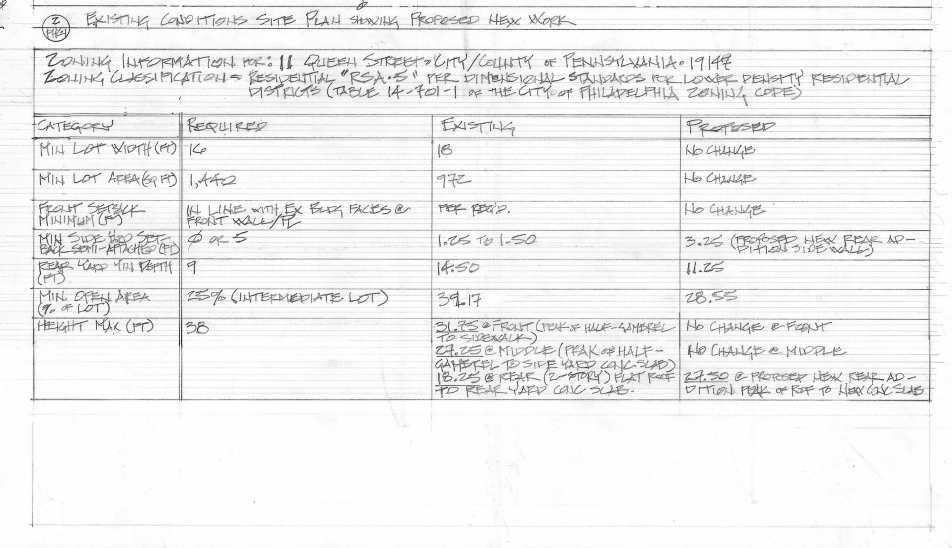 2 EXISTING CONDITIONS SITE PLAN SHOWING PROPOSED NEW WORK
ZONING INFORMATION FOR: 11 QUEEN STREET • CITY/COUNTY OF PENNSYLVANIA • 19147
ZONING CLASSIFICATION = RESIDENTIAL "RSA-5" PER DIMENSIONAL STANDARDS FOR LOWER DENSITY RESIDENTIAL
DISTRICTS (TABLE 14-701-1 OF THE CITY OF PHILADELPHIA ZONING CODE)
CATEGORY REQUIRED EXISTING PROPOSED
MIN LOT WIDTH (FT) 16 18 NO CHANGE
MIN LOT AREA (SQ FT) 1,440 972 NO CHANGE
FRONT SETBACK
MINIMUM (FT)
IN LINE WITH EX BLDG FACES @
FRONT WALL/PL
PER REQ'D.
NO CHANGE
MIN SIDE YARD SET-
BACK SEMI-ATTACHED (FT)
Ø OR 5
1.25 TO 1.50
3.25 (PROPOSED NEW REAR AD-
DITION SIDE WALL)
REAR YARD MIN DEPTH
(FT)
9
14.50
11.25
MIN. OPEN AREA
(% OF LOT)
25% (INTERMEDIATE LOT)
39.17
28.55
HEIGHT MAX (FT)
38
31.75 @ FRONT (PEAK OF HALF-GAMBREL
TO SIDEWALK)
27.25 @ MIDDLE (PEAK OF HALF-
GAMBREL TO SIDE YARD CONC SLAB)
18.25 @ REAR (2-STORY) FLAT ROOF
TO REAR YARD CONC SLAB.
NO CHANGE @ FRONT
NO CHANGE @ MIDDLE
27.50 @ PROPOSED NEW REAR AD-
DITION PEAK OF ROOF TO NEW CONC SLAB